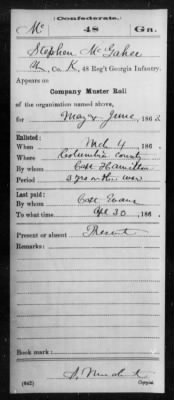 Confederate.
Mc 48 Ga.
Stephen McGahee
Co. K, 48 Reg't Georgia Infantry.
Appears on
Company Muster Roll
of the organization named above,
for May & June, 186
Enlisted:
When Mch 4, 186
Where Columbia county
By whom Capt Hamilton
Period 3 yrs or the war
Last paid:
By whom Capt Evans
To what time Apl 30, 186
Present or absent Present
Remarks:
Book mark:
(642) Copyist.